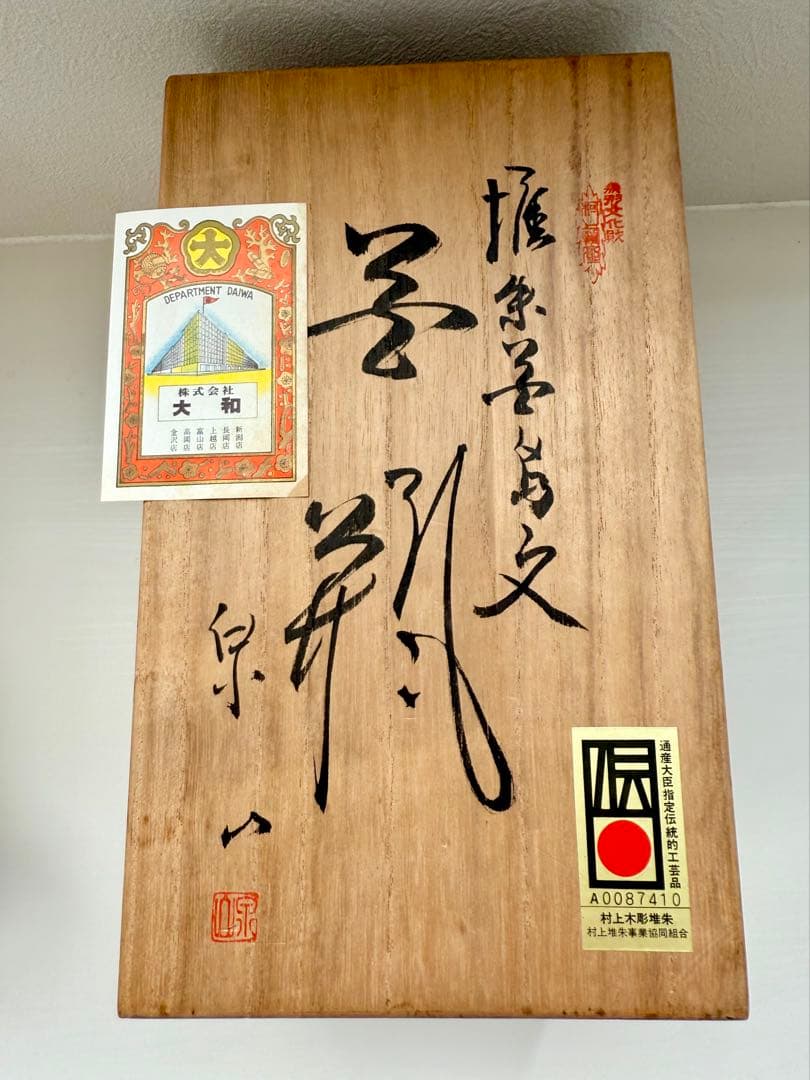 堆朱花鳥文
花瓶
泉山
大
DEPARTMENT DAIWA
株式会社
大和
新潟店
長岡店
上越店
富山店
高岡店
金沢店
通産大臣指定伝統的工芸品
伝
A0087410
村上木彫堆朱
村上堆朱事業協同組合